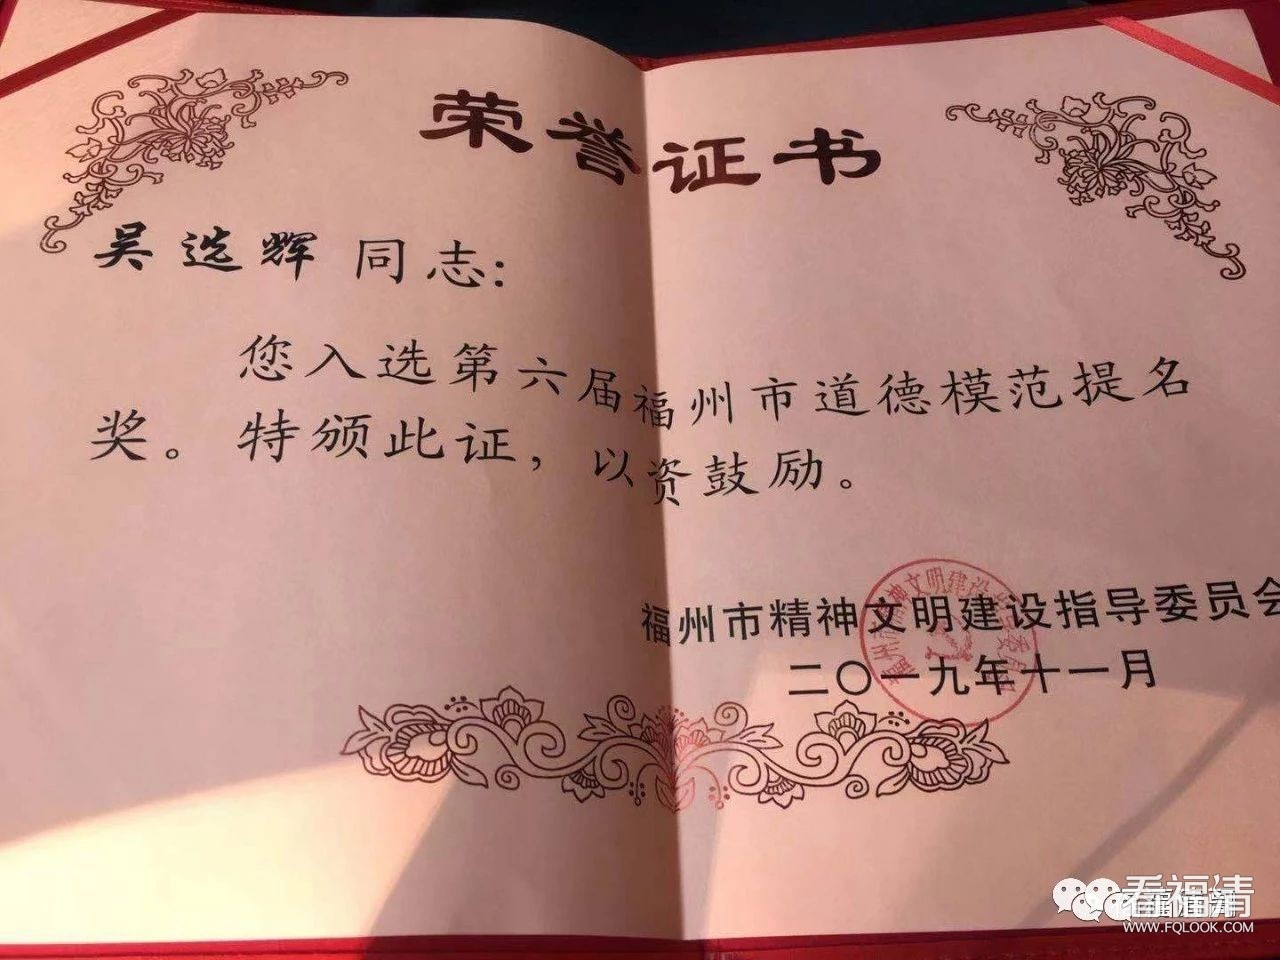 荣誉证书
吴选辉 同志:
您入选第六届福州市道德模范提名
奖。特颁此证，以资鼓励。
福州市精神文明建设指导委员会
二〇一九年十一月
看福清
WWW.FQLOOK.COM